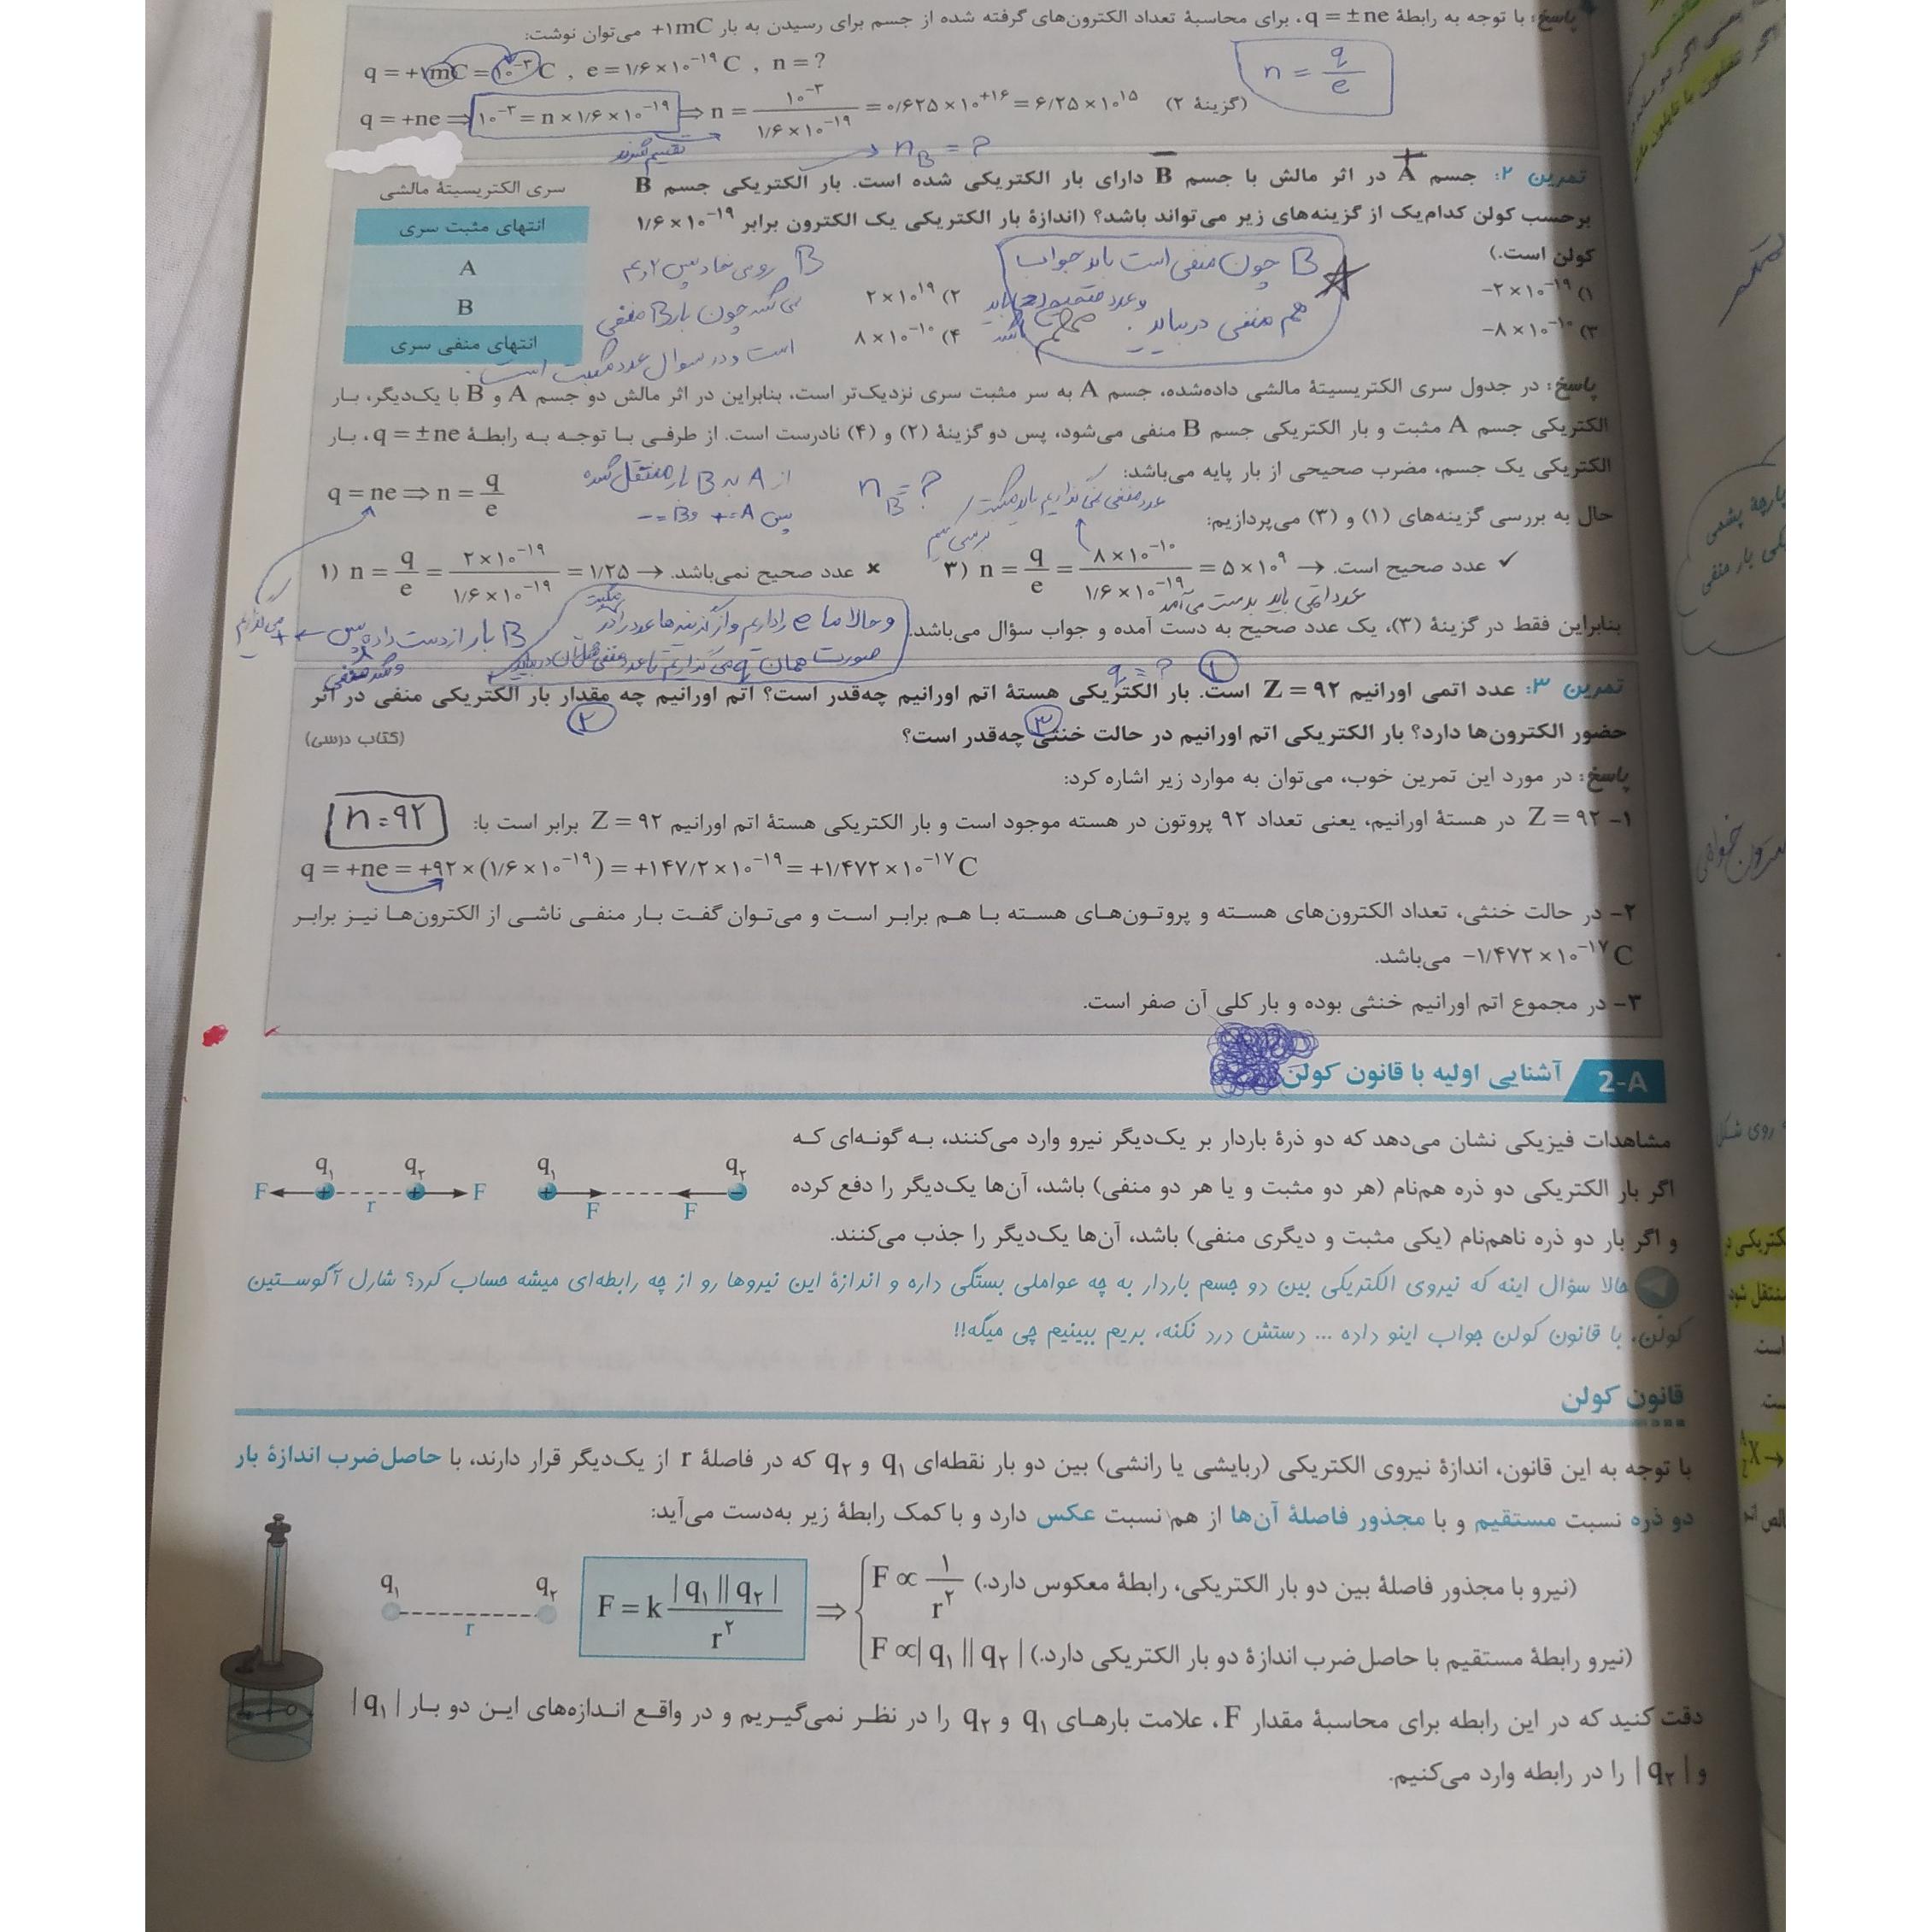 پاسخ: با توجه به رابطهٔ q = ±ne، برای محاسبهٔ تعداد الکترون‌های گرفته شده از جسم برای رسیدن به بار +۱mC می‌توان نوشت:
q = +۱mC = ۱۰⁻³ C , e = ۱/۶ × ۱۰⁻¹⁹ C , n = ?
n = q/e
q = +ne ⇒ ۱۰⁻³ = n × ۱/۶ × ۱۰⁻¹⁹ ⇒ n = ۱۰⁻³ / ۱/۶ × ۱۰⁻¹⁹ = ۰/۶۲۵ × ۱۰⁺¹⁶ = ۶/۲۵ × ۱۰¹⁵ (گزینهٔ ۲)
n_B = ?
تمرین ۲: جسم A در اثر مالش با جسم B دارای بار الکتریکی شده است. بار الکتریکی جسم B
برحسب کولن کدام‌یک از گزینه‌های زیر می‌تواند باشد؟ (اندازهٔ بار الکتریکی یک الکترون برابر ۱/۶ × ۱۰⁻¹⁹
کولن است.)
۱) −۲ × ۱۰⁻¹⁹
۲) ۲ × ۱۰¹⁹
۳) −۸ × ۱۰⁻¹⁰
۴) ۸ × ۱۰⁻¹⁰
B چون منفی است باید جواب
هم منفی دربیاید.
چون بار B منفی
است و در سوال عدد مثبت است.
سری الکتریسیتهٔ مالشی
انتهای مثبت سری
A
B
انتهای منفی سری
پاسخ: در جدول سری الکتریسیتهٔ مالشی داده‌شده، جسم A به سر مثبت سری نزدیک‌تر است، بنابراین در اثر مالش دو جسم A و B با یک‌دیگر، بار
الکتریکی جسم A مثبت و بار الکتریکی جسم B منفی می‌شود، پس دو گزینهٔ (۲) و (۴) نادرست است. از طرفی با توجه به رابطهٔ q = ±ne، بار
الکتریکی یک جسم، مضرب صحیحی از بار پایه می‌باشد:
q = ne ⇒ n = q/e
از A به B بار منتقل شده
n_B = ?
حال به بررسی گزینه‌های (۱) و (۳) می‌پردازیم:
۱) n = q/e = ۲ × ۱۰⁻¹⁹ / ۱/۶ × ۱۰⁻¹⁹ = ۱/۲۵ → عدد صحیح نمی‌باشد. ×
۳) n = q/e = ۸ × ۱۰⁻¹⁰ / ۱/۶ × ۱۰⁻¹⁹ = ۵ × ۱۰⁹ → عدد صحیح است. ✓
بنابراین فقط در گزینهٔ (۳)، یک عدد صحیح به دست آمده و جواب سؤال می‌باشد.
B بار از دست داده پس
q = ?
تمرین ۳: عدد اتمی اورانیم Z = ۹۲ است. بار الکتریکی هستهٔ اتم اورانیم چه‌قدر است؟ اتم اورانیم چه مقدار بار الکتریکی منفی در اثر
حضور الکترون‌ها دارد؟ بار الکتریکی اتم اورانیم در حالت خنثی چه‌قدر است؟
(کتاب درسی)
پاسخ: در مورد این تمرین خوب، می‌توان به موارد زیر اشاره کرد:
۱− Z = ۹۲ در هستهٔ اورانیم، یعنی تعداد ۹۲ پروتون در هسته موجود است و بار الکتریکی هستهٔ اتم اورانیم Z = ۹۲ برابر است با:
n = ۹۲
q = +ne = +۹۲ × (۱/۶ × ۱۰⁻¹⁹) = +۱۴۷/۲ × ۱۰⁻¹⁹ = +۱/۴۷۲ × ۱۰⁻¹⁷ C
۲− در حالت خنثی، تعداد الکترون‌های هسته و پروتون‌های هسته با هم برابر است و می‌توان گفت بار منفی ناشی از الکترون‌ها نیز برابر
−۱/۴۷۲ × ۱۰⁻¹⁷ C می‌باشد.
۳− در مجموع اتم اورانیم خنثی بوده و بار کلی آن صفر است.
2-A آشنایی اولیه با قانون کولن
مشاهدات فیزیکی نشان می‌دهد که دو ذرهٔ باردار بر یک‌دیگر نیرو وارد می‌کنند، به گونه‌ای که
اگر بار الکتریکی دو ذره هم‌نام (هر دو مثبت و یا هر دو منفی) باشد، آن‌ها یک‌دیگر را دفع کرده
و اگر بار دو ذره ناهم‌نام (یکی مثبت و دیگری منفی) باشد، آن‌ها یک‌دیگر را جذب می‌کنند.
q₁ q₂ q₁ q₂
F + r + F + F F −
حالا سؤال اینه که نیروی الکتریکی بین دو جسم باردار به چه عواملی بستگی داره و اندازهٔ این نیروها رو از چه رابطه‌ای میشه حساب کرد؟ شارل آگوستین
کولن، با قانون کولن جواب اینو داده ... دستش درد نکنه، بریم ببینیم چی میگه!!
قانون کولن
با توجه به این قانون، اندازهٔ نیروی الکتریکی (ربایشی یا رانشی) بین دو بار نقطه‌ای q₁ و q₂ که در فاصلهٔ r از یک‌دیگر قرار دارند، با حاصل‌ضرب اندازهٔ بار
دو ذره نسبت مستقیم و با مجذور فاصلهٔ آن‌ها از هم نسبت عکس دارد و با کمک رابطهٔ زیر به‌دست می‌آید:
q₁ r q₂
F = k |q₁||q₂| / r² ⇒
F ∝ ۱/r² (نیرو با مجذور فاصلهٔ بین دو بار الکتریکی، رابطهٔ معکوس دارد.)
F ∝ |q₁||q₂| (نیرو رابطهٔ مستقیم با حاصل‌ضرب اندازهٔ دو بار الکتریکی دارد.)
دقت کنید که در این رابطه برای محاسبهٔ مقدار F، علامت بارهای q₁ و q₂ را در نظر نمی‌گیریم و در واقع اندازه‌های این دو بار |q₁|
و |q₂| را در رابطه وارد می‌کنیم.